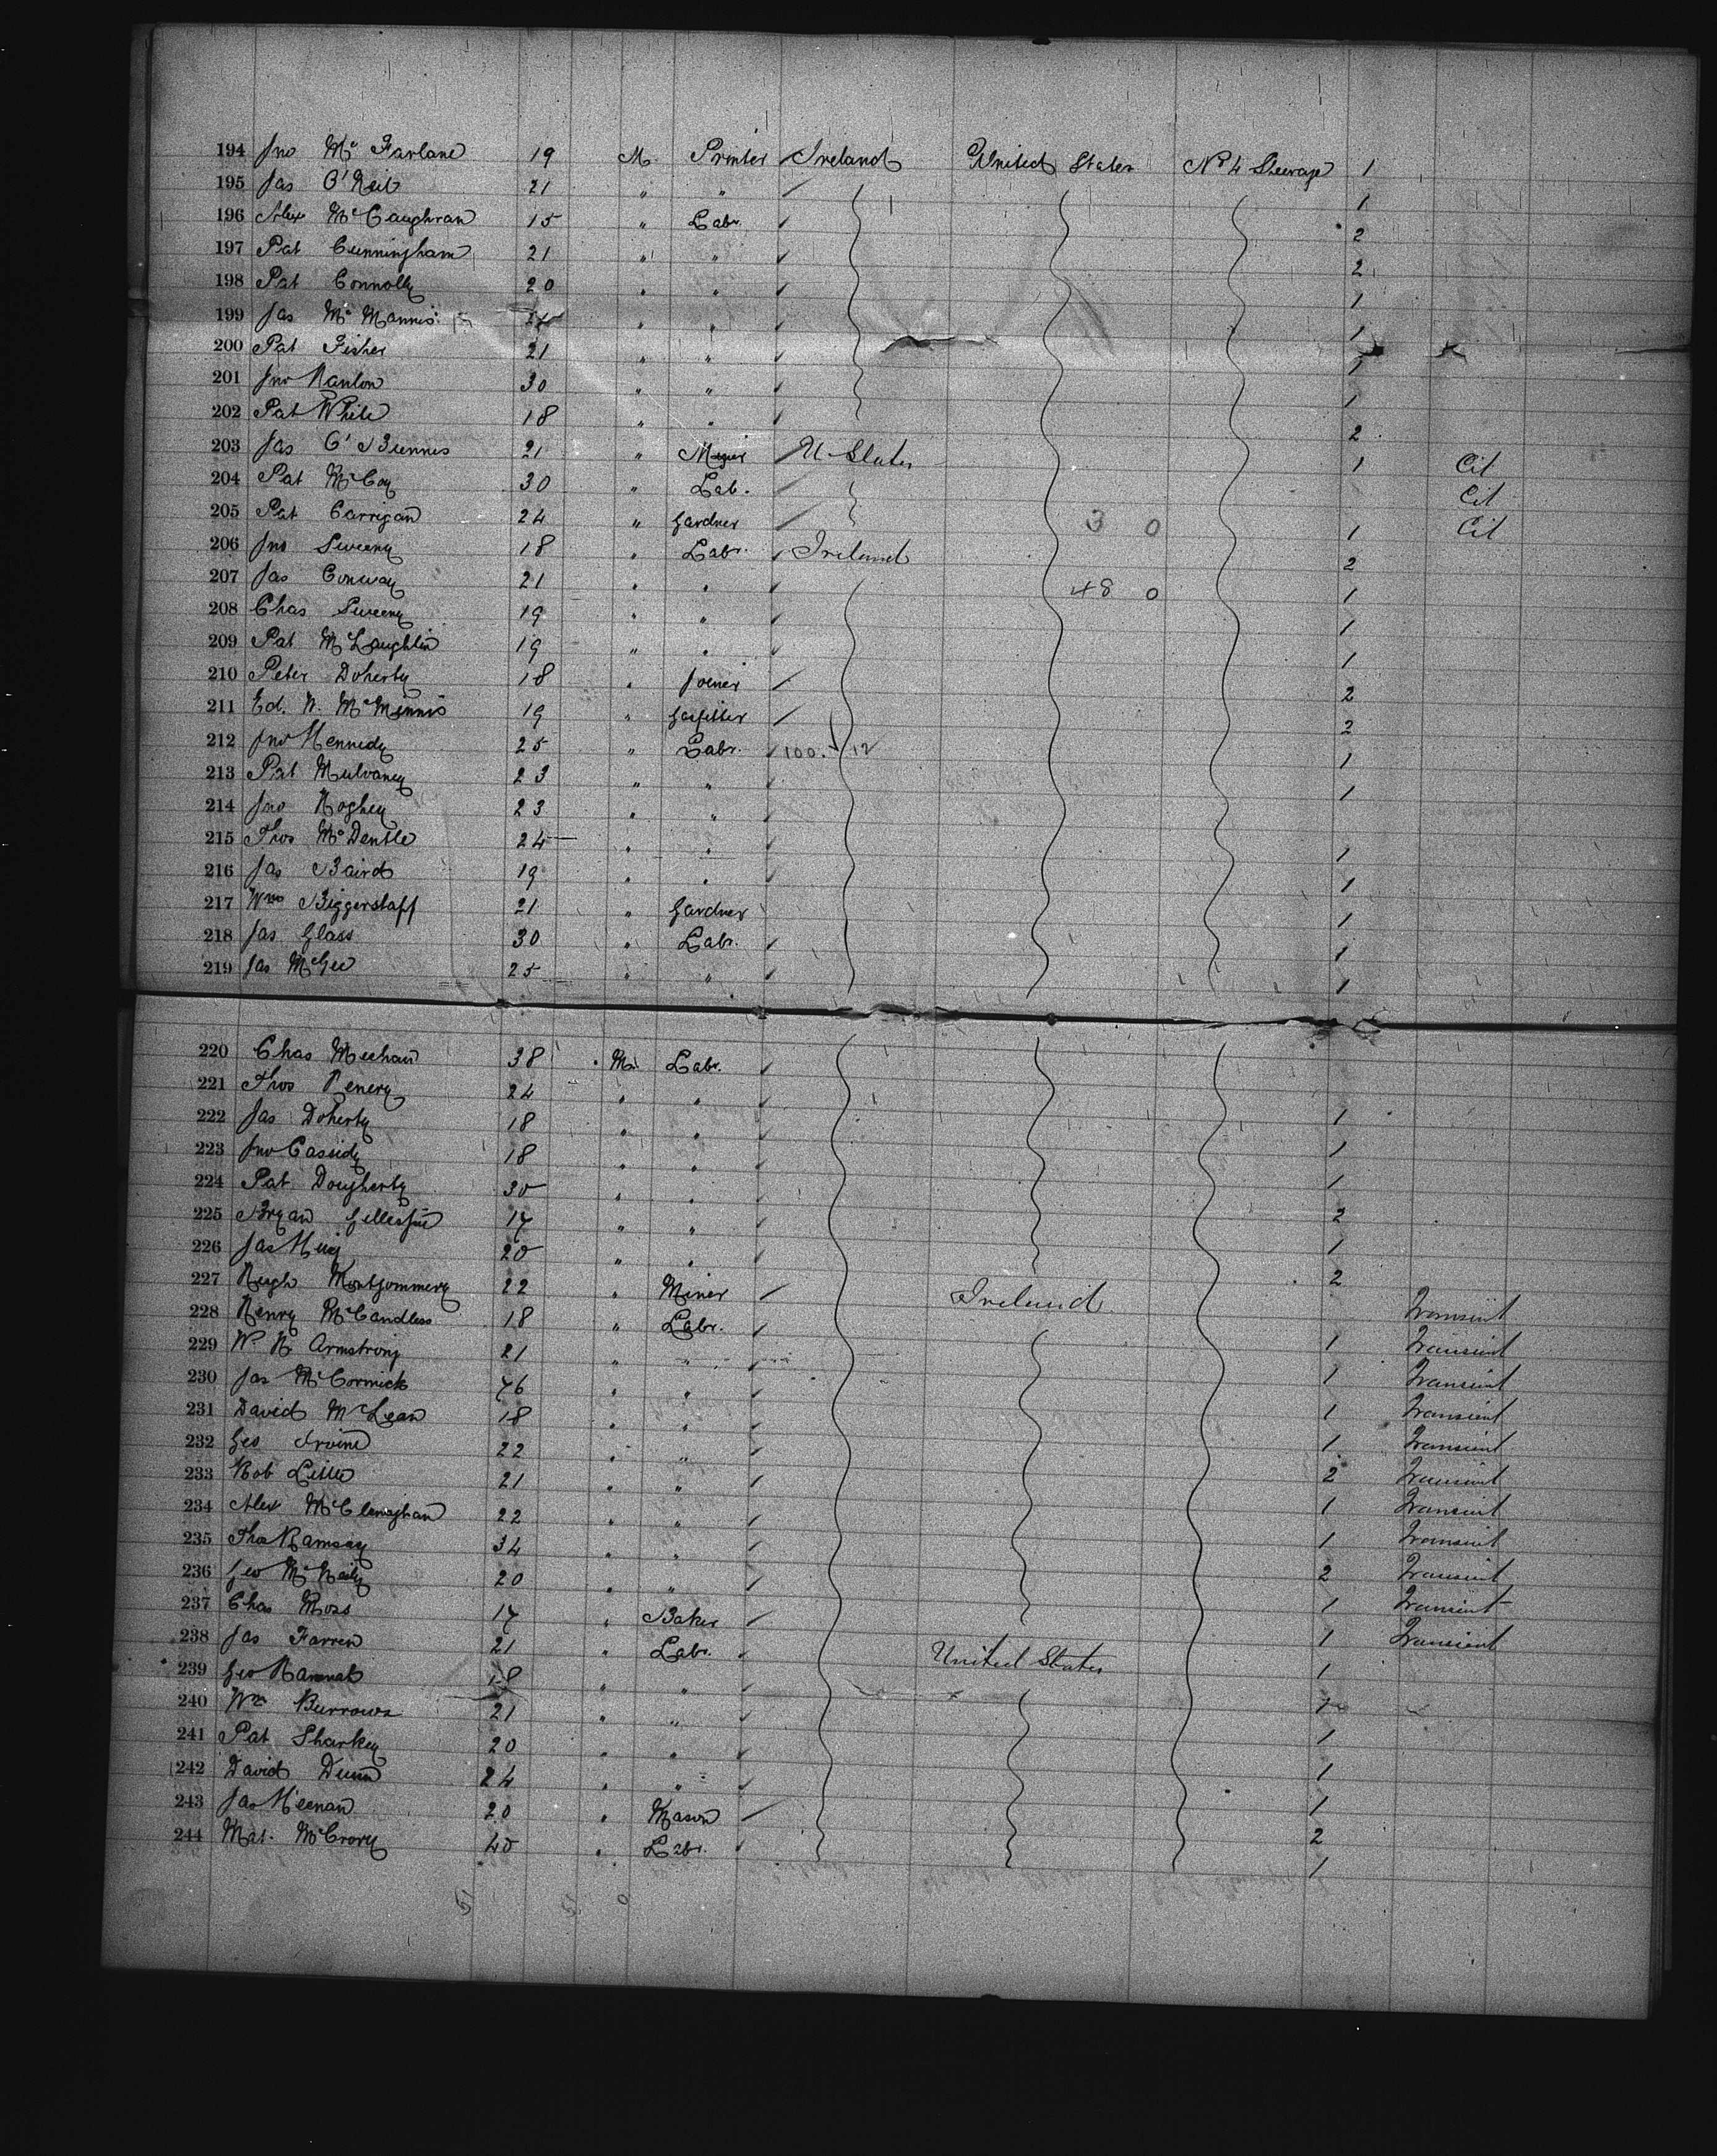 194 Jno McFarland 19 M. Printer Ireland United States No 4 Steerage 1
195 Jas O'Neil 21 " " 1
196 Alex McCaughran 15 " Labr. 2
197 Pat Cunningham 21 " " 2
198 Pat Connolly 20 " " 1
199 Jas McMannis " " 1
200 Pat Fisher 21 " " 1
201 Jno Hanlon 30 " " 1
202 Pat White 18 " " 2
203 Jas 21 " U. States 1 Cit
204 Pat McCoy 30 " Lab. Cit
205 Pat Carrigan 24 " Gardner 3 0 1 Cit
206 Jno Sweeny 18 " Labr. Ireland 2
207 Jas Conway 21 " " 48 0 1
208 Chas Sweeny 19 " " 1
209 Pat McLaughlin 19 " " 1
210 Peter Doherty 18 " Joiner 2
211 Ed. H. McMinnis 19 " Gasfitter 2
212 Jno Kennedy 25 " Labr. 100. 12 1
213 Pat Mulvaney 23 " " 1
214 Jno Hoghey 23 " "
215 Thos 24 " " 1
216 Jas Baird 19 " " 1
217 Wm Biggerstaff 21 " Gardner 1
218 Jas Glass 30 " Labr. 1
219 Jas McGee 25 " " 1
220 Chas Meehan 38 M. Labr.
221 Thos 24 " "
222 Jas Doherty 18 " " 1
223 Jno Cassidy 18 " " 1
224 Pat Dougherty 30 " " 1
225 Bryan Gillespie 17 " " 2
226 Jas 20 " " 1
227 Hugh Montgommery 22 " Miner Ireland 2
228 Henry McCandless 18 " Labr. Transient
229 Wm H. Armstrong 21 " " 1 Transient
230 Jas McCormick " " 1 Transient
231 David McLean 18 " " 1 Transient
232 Geo Irvine 22 " " 1 Transient
233 Rob 21 " " 2 Transient
234 Alex McClenaghan 22 " " 1 Transient
235 Thos Ramsay 34 " " 1 Transient
236 Geo McNeily 20 " " 2 Transient
237 Chas Ross 17 " Baker 1 Transient
238 Jas Farren 21 " Labr. United States 1 Transient
239 Geo Hannah 18 " " 1
240 Wm Burrows 21 " " 1
241 Pat Sharkey 20 " " 1
242 David Dunn 24 " " 1
243 Jas Keenan 20 " Mason 1
244 Mat. McCrory 40 " Labr. 2
1